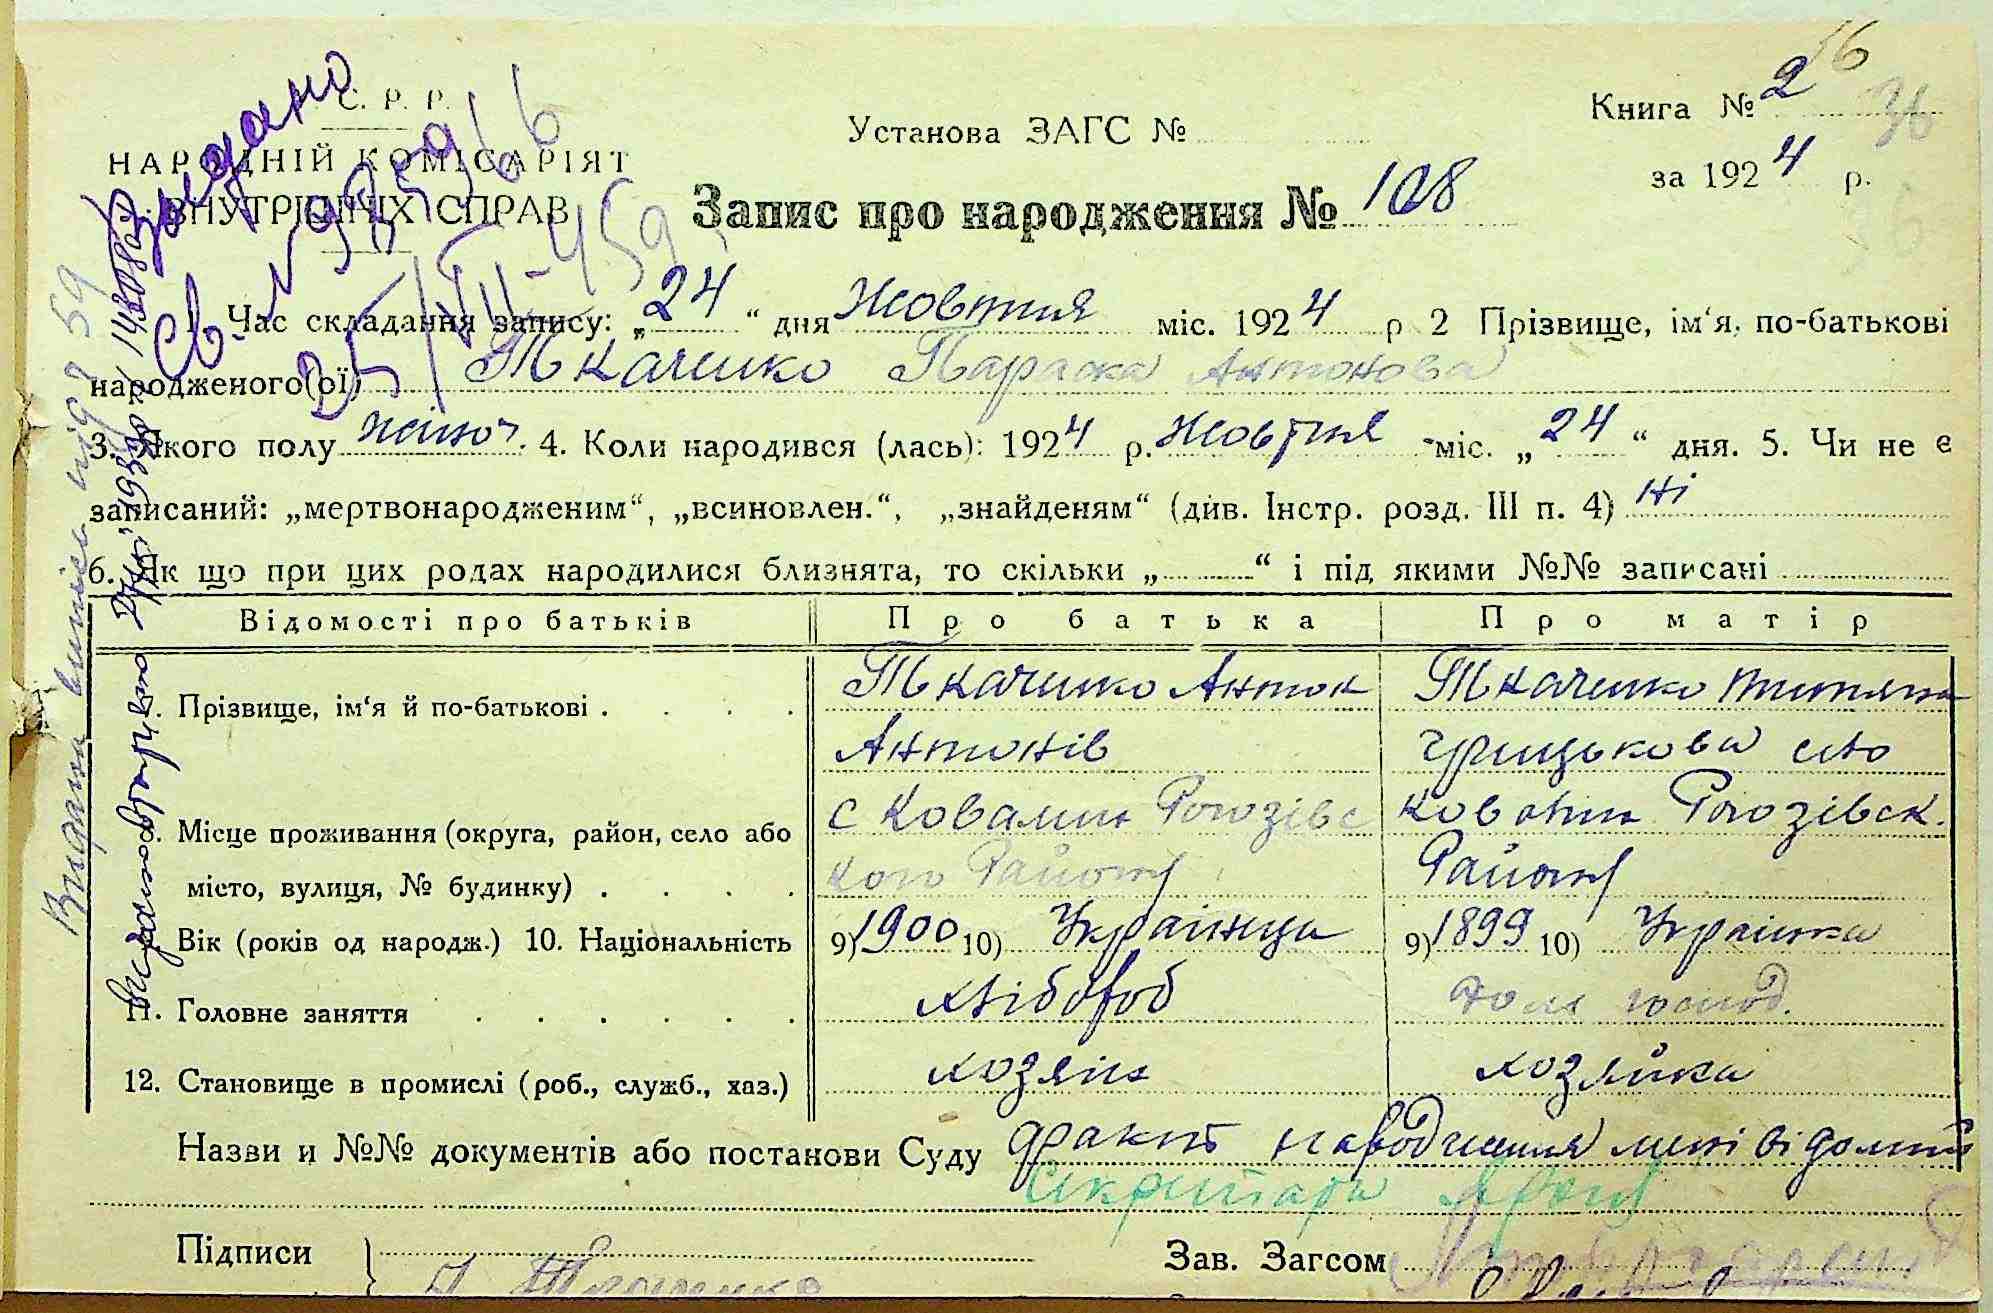 С. Р. Р.
НАРОДНІЙ КОМІСАРІЯТ
ВНУТРІШНІХ СПРАВ
Видано
Установа ЗАГС №
Книга № 2
36
за 1924 р.
Запис про народження № 108
1. Час складання запису: „24“ дня Жовтня міс. 1924 р 2 Прізвище, ім‘я, по-батькові
народженого(ої) Ткаченко Параска Антонова
3. Якого полу жіноч. 4. Коли народився (лась): 1924 р. Жовтня міс. „24“ дня. 5. Чи не є
записаний: „мертвонародженим“, „всиновлен.“, „знайденям“ (див. Інстр. розд. III п. 4) ні
6. Як що при цих родах народилися близнята, то скільки „ “ і під якими №№ записані
Відомості про батьків Про батька Про матір
Прізвище, ім‘я й по-батькові . . . . Ткаченко Антон Ткаченко Титяна
Антонів Грицькова село
Місце проживання (округа, район, село або с Ковалин Рогозівс Ковалин Рогозівск.
місто, вулиця, № будинку) . . . . кого Району Району
Вік (років од народж.) 10. Національність 9) 1900 10) Українец 9) 1899 10) Українка
11. Головне заняття . . . . . . хлібороб дом господ.
12. Становище в промислі (роб., служб., хаз.) хозяін хозяйка
Назви и №№ документів або постанови Суду факт народження мені відомий
Секретарь
Підписи
Ткаченко
Зав. Загсом